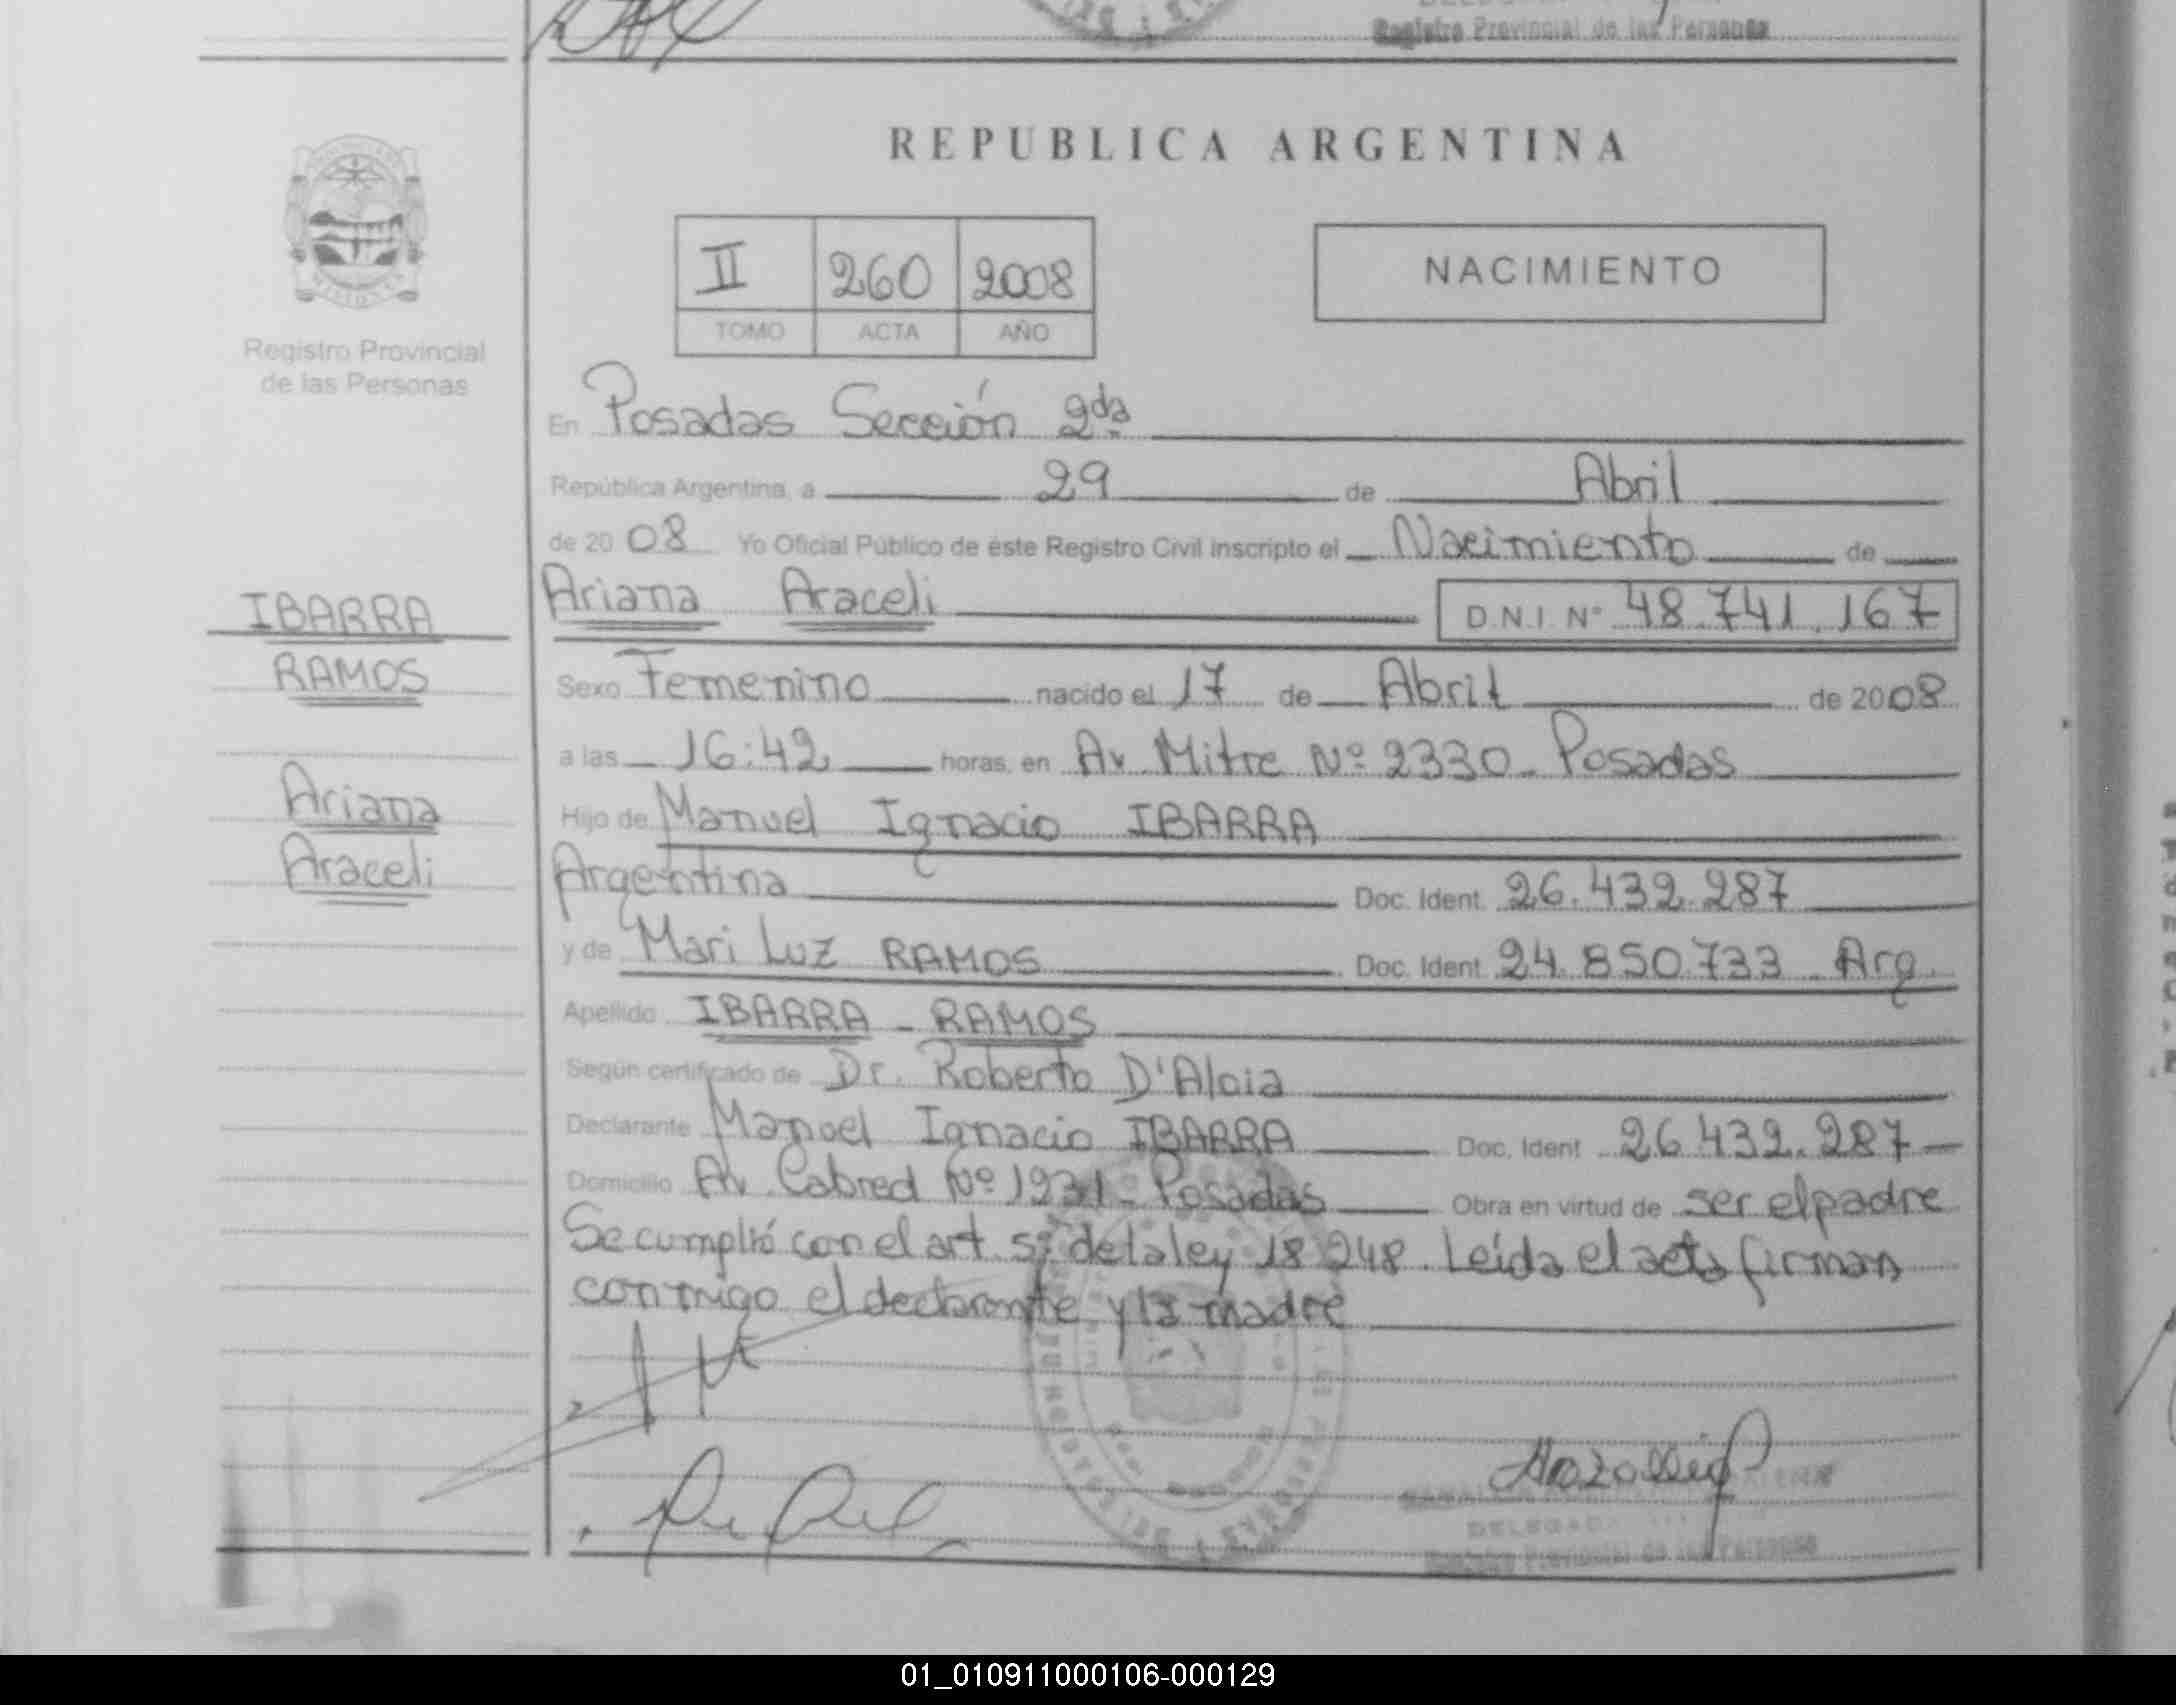 Registro Provincial de las Personas
REPUBLICA ARGENTINA
II 260 2008
TOMO ACTA AÑO
NACIMIENTO
Registro Provincial
de las Personas
En Posadas Sección 2da
República Argentina, a 29 de Abril
de 2008 Yo Oficial Público de éste Registro Civil inscripto el Nacimiento de
Ariana Araceli D.N.I. Nº 48.741.167
IBARRA
RAMOS
Ariana
Araceli
Sexo Femenino nacido el 17 de Abril de 2008
a las 16:42 horas, en Av. Mitre Nº 2330 - Posadas
Hijo de Manuel Ignacio IBARRA
Argentina Doc. Ident. 26.432.287
y de Mari Luz RAMOS Doc. Ident. 24.850.733 Arg.
Apellido IBARRA - RAMOS
Según certificado de Dr. Roberto D'Aloia
Declarante Manuel Ignacio IBARRA Doc. Ident. 26.432.287
Domicilio Av. Cabred Nº 1931 - Posadas Obra en virtud de ser el padre
Se cumplió con el art. 5º de la ley 18.248. Leída el acta firman
conmigo el declarante y la madre
DELEGADA
Registro Provincial de las Personas
01_010911000106-000129